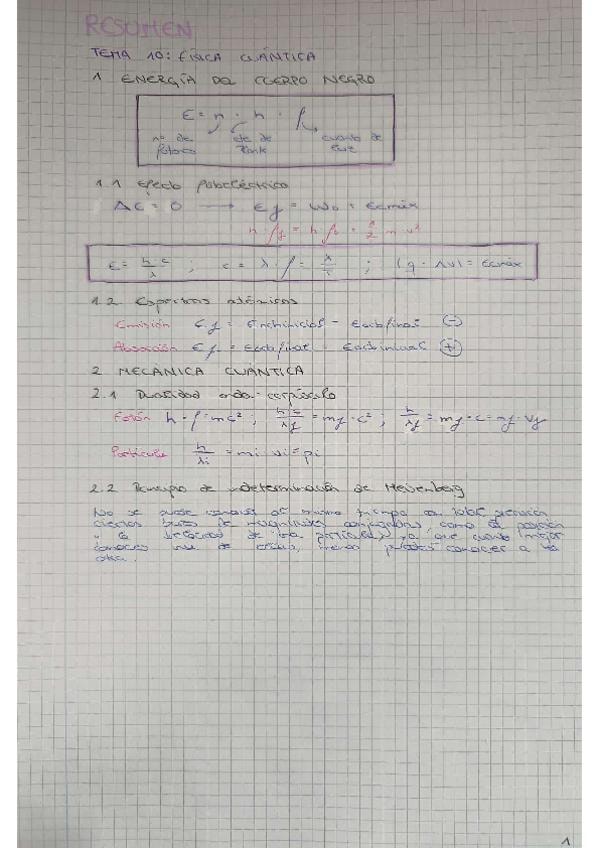 RESUMEN
TEMA 10: FÍSICA CUÁNTICA
1 ENERGÍA DEL CUERPO NEGRO
E = n · h · f
nº de cte de cuanto de
fotones Plank luz
1.1 Efecto fotoeléctrico
ΔE = 0 → Ef = Wo + Ecmáx
h · ff = h fo + 1/2 m v²
E = h·c/λ ; c = λ · f = λ/T ; |q · ΔV| = Ecmáx
1.2 Espectros atómicos
Emisión Ef = Enahinicial - Ecorbfinal (-)
Absorción Ef = Eorbfinal - Eorbinicial (+)
2 MECÁNICA CUÁNTICA
2.1 Dualidad onda-corpúsculo
Fotón h · f = mc² ; h·c/λf = mf · c² ; h/λf = mf · c = mf · vf
Partícula h/λi = mi vi = pi
2.2 Principio de indeterminación de Heisenberg
No se puede conocer al mismo tiempo con total precisión
ciertos pares de magnitudes conjugadas, como la posición
y la velocidad de una partícula, ya que cuanto mejor
conoces una de ellas, menos puedes conocer a la
otra.
1